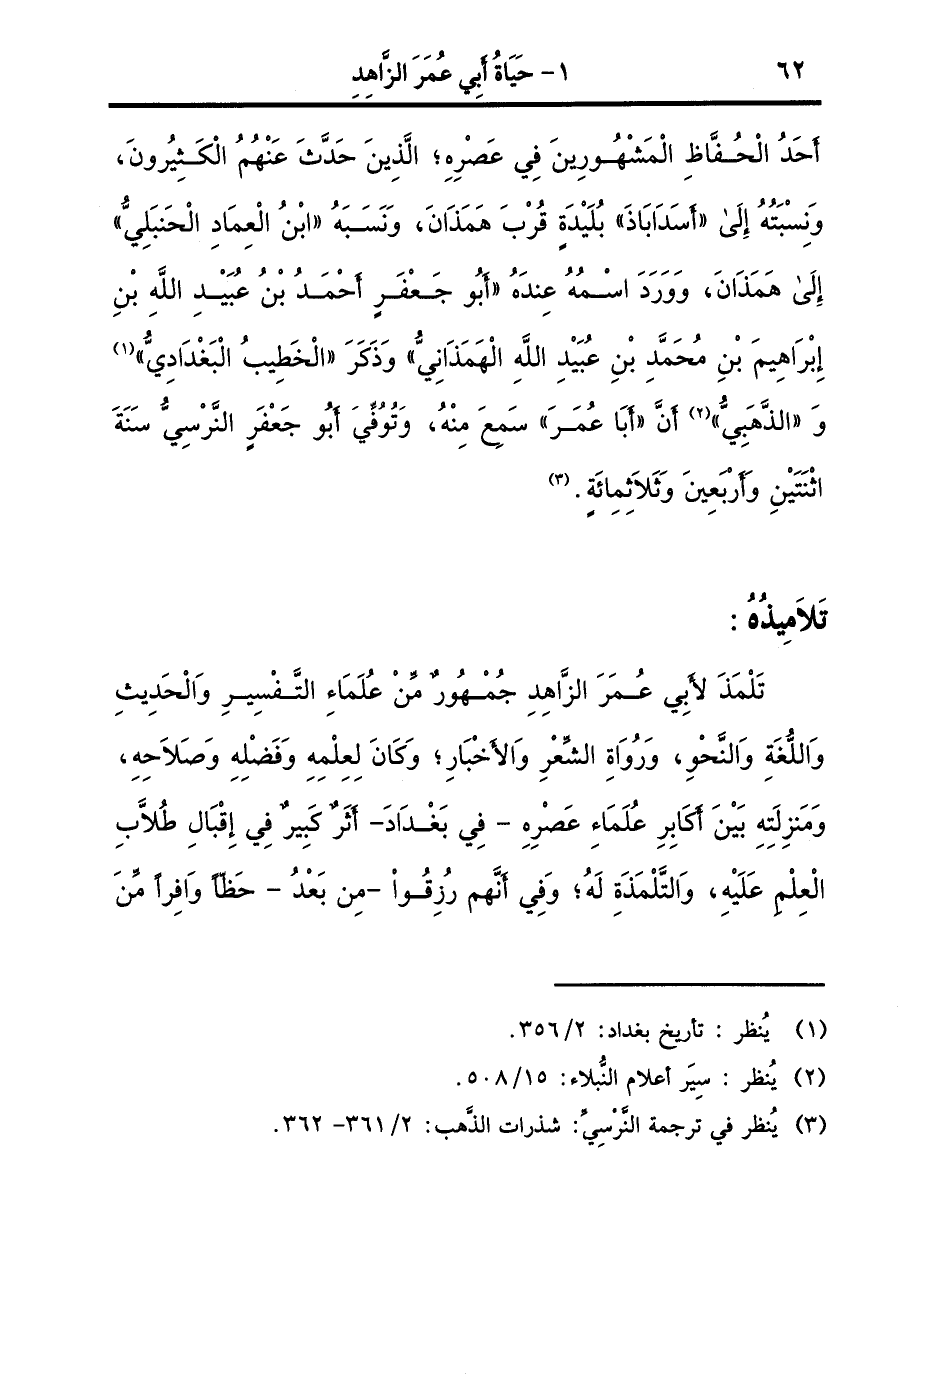 ٦٢
١- حَيَاةُ أَبِي عُمَرَ الزَّاهِدِ
أَحَدُ الْحُفَّاظِ الْمَشْهُورِينَ فِي عَصْرِهِ؛ الَّذِينَ حَدَّثَ عَنْهُمُ الْكَثِيرُونَ،
وَنِسْبَتُهُ إِلَىٰ «أَسَدَابَاذَ» بُلَيْدَةٍ قُرْبَ هَمَذَانَ، وَنَسَبَهُ «ابْنُ الْعِمَادِ الْحَنبَلِيُّ»
إِلَىٰ هَمَذَانَ، وَوَرَدَ اسْمُهُ عِندَهُ «أَبُو جَعْفَرٍ أَحْمَدُ بْنُ عُبَيْدِ اللَّهِ بْنِ
إِبْرَاهِيمَ بْنِ مُحَمَّدِ بْنِ عُبَيْدِ اللَّهِ الْهَمَذَانِيُّ» وَذَكَرَ «الْخَطِيبُ الْبَغْدَادِيُّ»(١)
وَ «الذَّهَبِيُّ»(٢) أَنَّ «أَبَا عُمَرَ» سَمِعَ مِنْهُ، وَتُوُفِّيَ أَبُو جَعْفَرٍ النَّرْسِيُّ سَنَةَ
اثْنَتَيْنِ وَأَرْبَعِينَ وَثَلَاثِمِائَةٍ.(٣)
تَلاَمِيذُهُ :
تَلْمَذَ لأَبِي عُمَرَ الزَّاهِدِ جُمْهُورٌ مِّنْ عُلَمَاءِ التَّفْسِيرِ وَالْحَدِيثِ
وَاللُّغَةِ وَالنَّحْوِ، وَرُوَاةِ الشِّعْرِ وَالأَخْبَارِ؛ وَكَانَ لِعِلْمِهِ وَفَضْلِهِ وَصَلاَحِهِ،
وَمَنزِلَتِهِ بَيْنَ أَكَابِرِ عُلَمَاءِ عَصْرِهِ - فِي بَغْدَادَ- أَثَرٌ كَبِيرٌ فِي إِقْبَالِ طُلاَّبِ
الْعِلْمِ عَلَيْهِ، وَالتَّلْمَذَةِ لَهُ؛ وَفِي أَنَّهُم رُزِقُواْ -مِن بَعْدُ - حَظّاً وَافِراً مِّنَ
(١) يُنظر : تأريخ بغداد: ٣٥٦/٢.
(٢) يُنظر : سِيَر أعلام النُّبلاء: ٥٠٨/١٥.
(٣) يُنظر في ترجمة النَّرْسِيِّ: شذرات الذَّهب: ٣٦١/٢- ٣٦٢.